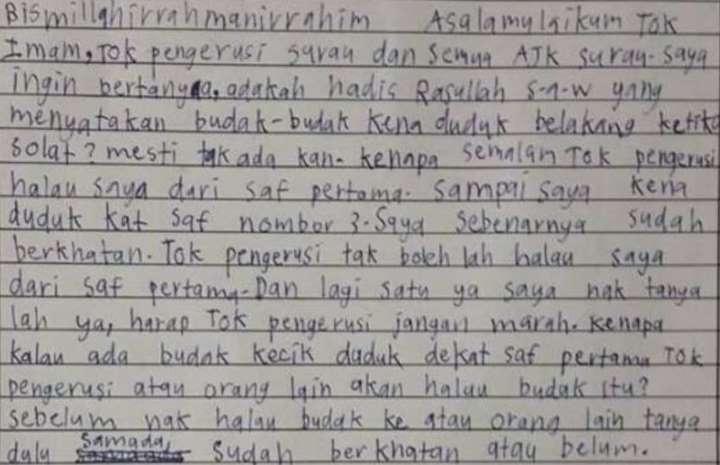 Bismillahhirrahmanirrahim Asalamulaikum Tok
Imam, Tok pengerusi surau dan semua AJK surau. saya
ingin bertanya, adakah hadis Rasullah s-a-w yang
menyatakan budak-budak kena duduk belakang ketika
solat? mesti tak ada kan. kenapa semalam Tok pengerusi
halau saya dari saf pertama. sampai saya kena
duduk kat saf nombor 3. Saya sebenarnya sudah
berkhatan. Tok pengerusi tak boleh lah halau saya
dari saf pertama. Dan lagi satu ya saya nak tanya
lah ya, harap Tok pengerusi jangan marah. Kenapa
kalau ada budak kecik duduk dekat saf pertama Tok
pengerusi atau orang lain akan halau budak itu?
sebelum nak halau budak ke atau orang lain tanya
dulu samada, sudah berkhatan atau belum.